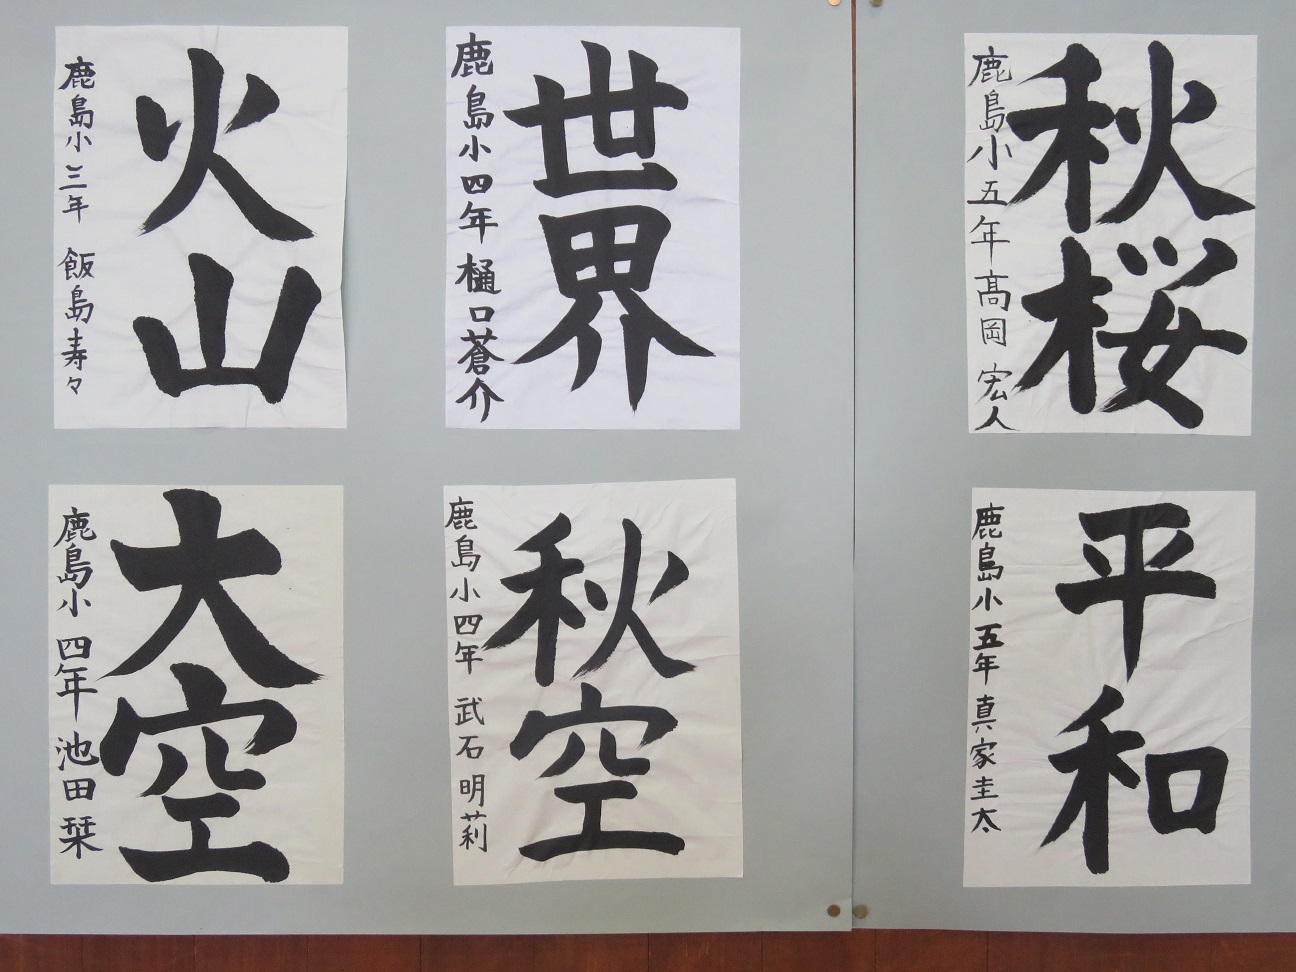 火山
鹿島小三年 飯島寿々
世界
鹿島小四年樋口蒼介
秋桜
鹿島小五年高岡宏人
大空
鹿島小四年池田栞
秋空
鹿島小四年武石明莉
平和
鹿島小五年真家圭太